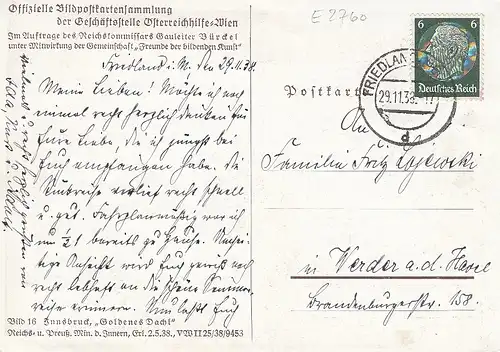 Offizielle Bildpostkartensammlung
der Geschäftsstelle Österreichhilfe-Wien
Im Auftrage des Reichskommissars Gauleiter Bürckel
unter Mitwirkung der Gemeinschaft „Freunde der bildenden Kunst“
Friedland i. M. den 29.11.38.
Meine Lieben! Möchte ich noch
einmal recht herzlich danken für
Eure Liebe, die ich jüngst bei
Euch empfangen habe. Die
verlief recht schnell
u. gut. Fahrplanmäßig war ich
um ½1 bereits zu Hause.
Ansicht wird Euch gewiß noch
recht lebhaft an die schöne Sommer-
reise erinnern. Nun laßt Euch
Bild 16 Innsbruck, „Goldenes Dachl“
Reichs- u. Preuß. Min. d. Innern, Erl. 2.5.38. VW II 25/38/9453
E 2760
6 6
Deutsches Reich
FRIEDLAND
29.11.38.
d
Postkarte
An
Familie Fritz
in Werder a. d. Havel
Brandenburgerstr. 158.